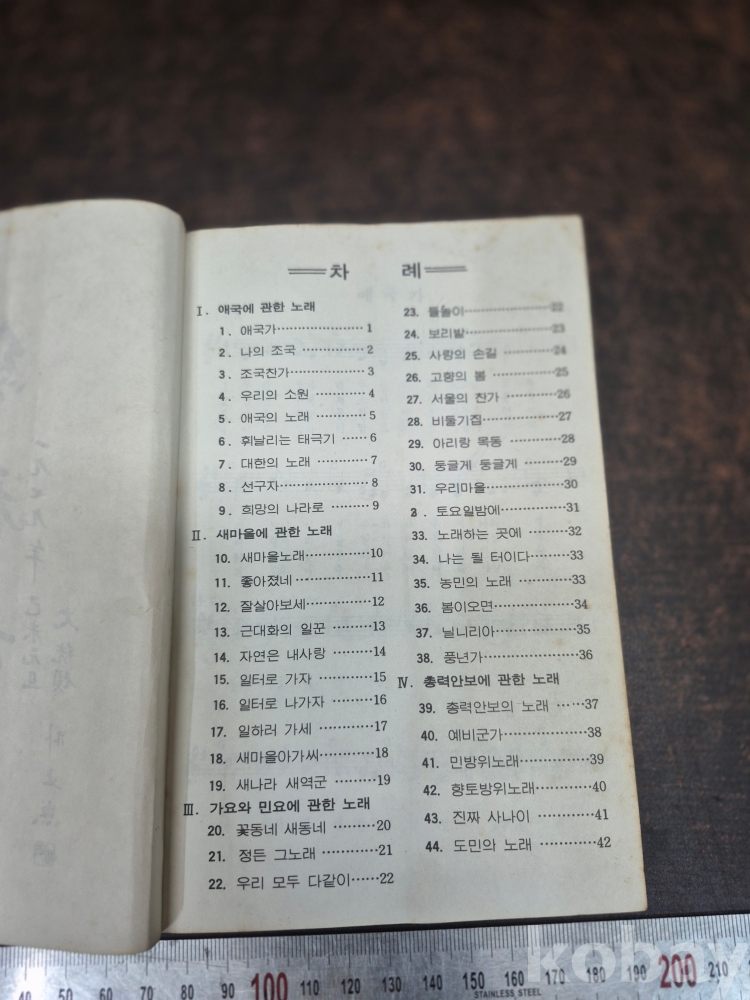 차 례
Ⅰ. 애국에 관한 노래
1. 애국가…………………1
2. 나의 조국 ……………2
3. 조국찬가………………3
4. 우리의 소원 …………4
5. 애국의 노래 …………5
6. 휘날리는 태극기 ……6
7. 대한의 노래 …………7
8. 선구자…………………8
9. 희망의 나라로 ………9
Ⅱ. 새마을에 관한 노래
10. 새마을노래……………10
11. 좋아졌네 ……………11
12. 잘살아보세……………12
13. 근대화의 일꾼 ………13
14. 자연은 내사랑 ………14
15. 일터로 가자 …………15
16. 일터로 나가자 ………16
17. 일하러 가세 …………17
18. 새마을아가씨…………18
19. 새나라 새역군 ………19
Ⅲ. 가요와 민요에 관한 노래
20. 꽃동네 새동네 ………20
21. 정든 그노래 …………21
22. 우리 모두 다같이……22
23. 들놀이…………………22
24. 보리밭…………………23
25. 사랑의 손길 …………24
26. 고향의 봄 ……………25
27. 서울의 찬가 …………26
28. 비둘기집………………27
29. 아리랑 목동 …………28
30. 둥글게 둥글게 ………29
31. 우리마을………………30
3. 토요일밤에……………31
33. 노래하는 곳에 ………32
34. 나는 될 터이다………33
35. 농민의 노래 …………33
36. 봄이오면………………34
37. 닐니리아………………35
38. 풍년가…………………36
Ⅳ. 총력안보에 관한 노래
39. 총력안보의 노래 ……37
40. 예비군가………………38
41. 민방위노래……………39
42. 향토방위노래…………40
43. 진짜 사나이 …………41
44. 도민의 노래 …………42
kobay
40 50 60 70 80 90 100 110 120 130 140 150 160 170 180 190 200 210
STAINLESS STEEL